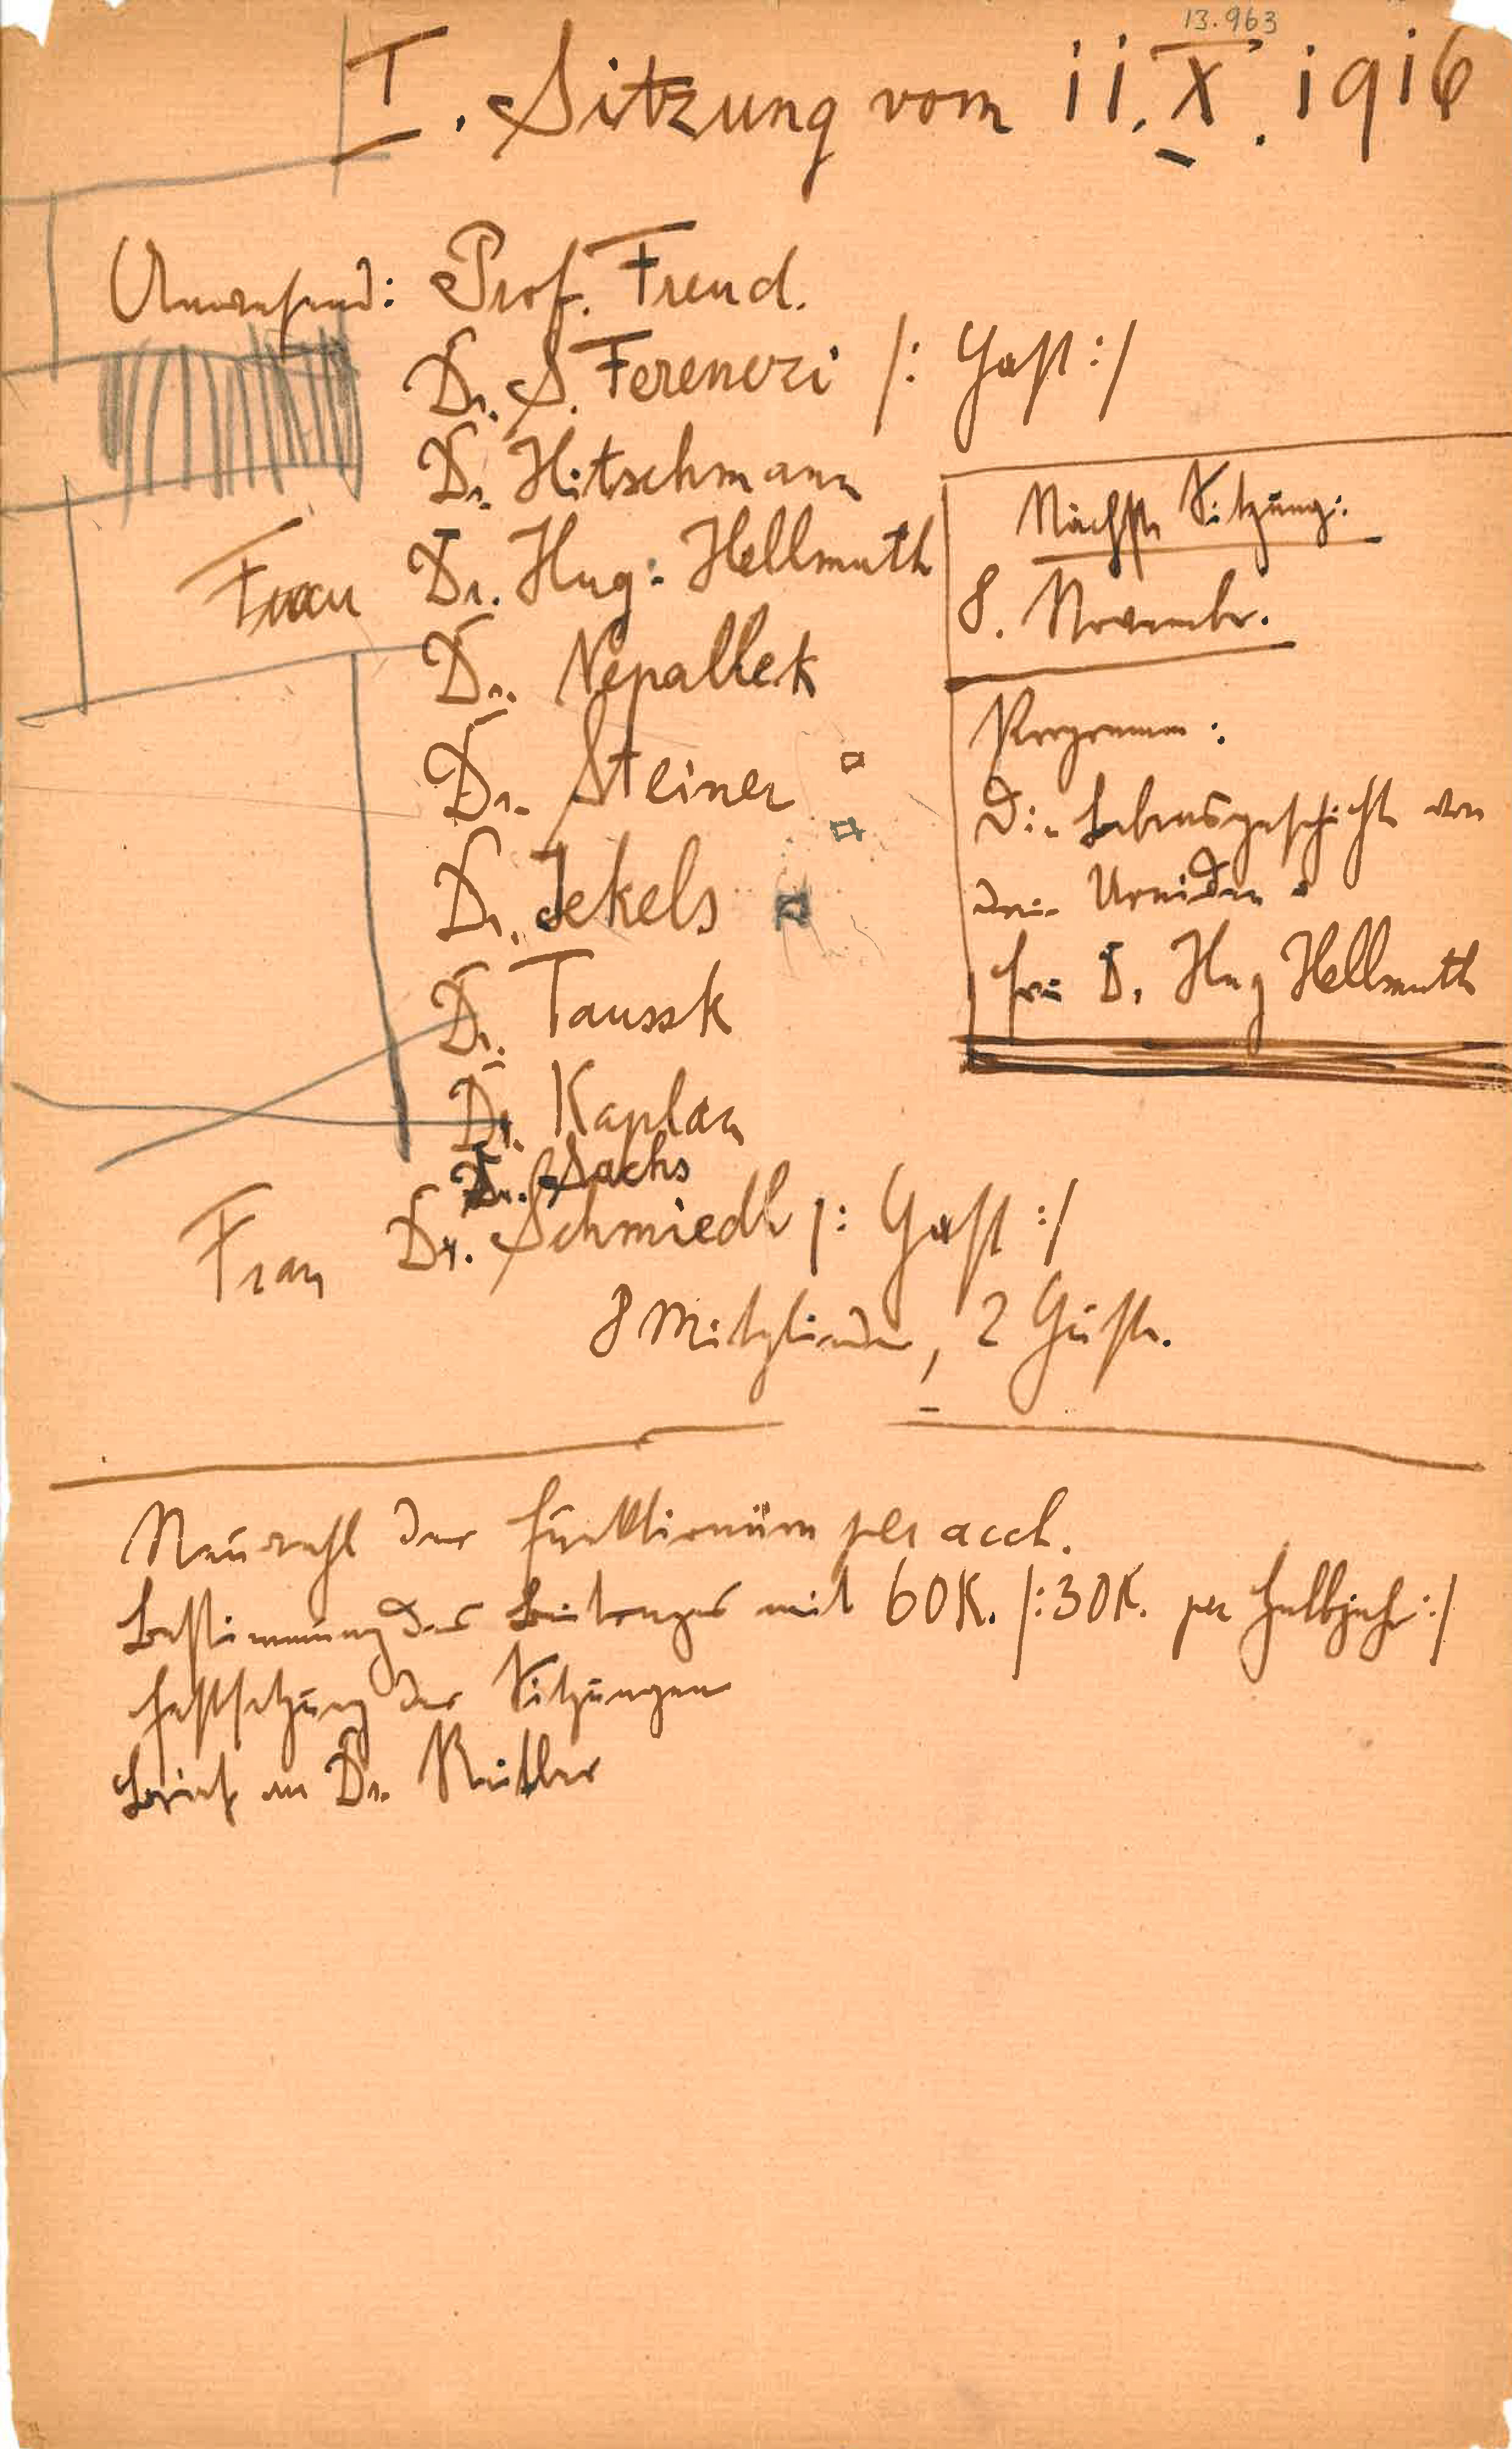 13.963
I. Sitzung vom 11. X. 1916
Anwesend: Prof. Freud.
Dr. S. Ferenczi /: Gast :/
Dr. Hitschmann
Frau Dr. Hug-Hellmuth
Dr. Nepallek
Dr. Steiner
Dr. Jekels
Dr. Taussk
Dr. Kaplan
Dr. Sachs
Frau Dr. Schmiedl /: Gast :/
8 Mitglieder, 2 Gäste.
Nächste Sitzung:
8. November.
Programm:
Die Lebensgeschichte von
drei Urniden
Frau Dr. Hug Hellmuth
Neuwahl der Funktionäre per accl.
Bestimmung des Beitrages mit 60 K. /: 30 K. per Halbjahr :/
Festsetzung der Sitzungen
Brief an Dr.